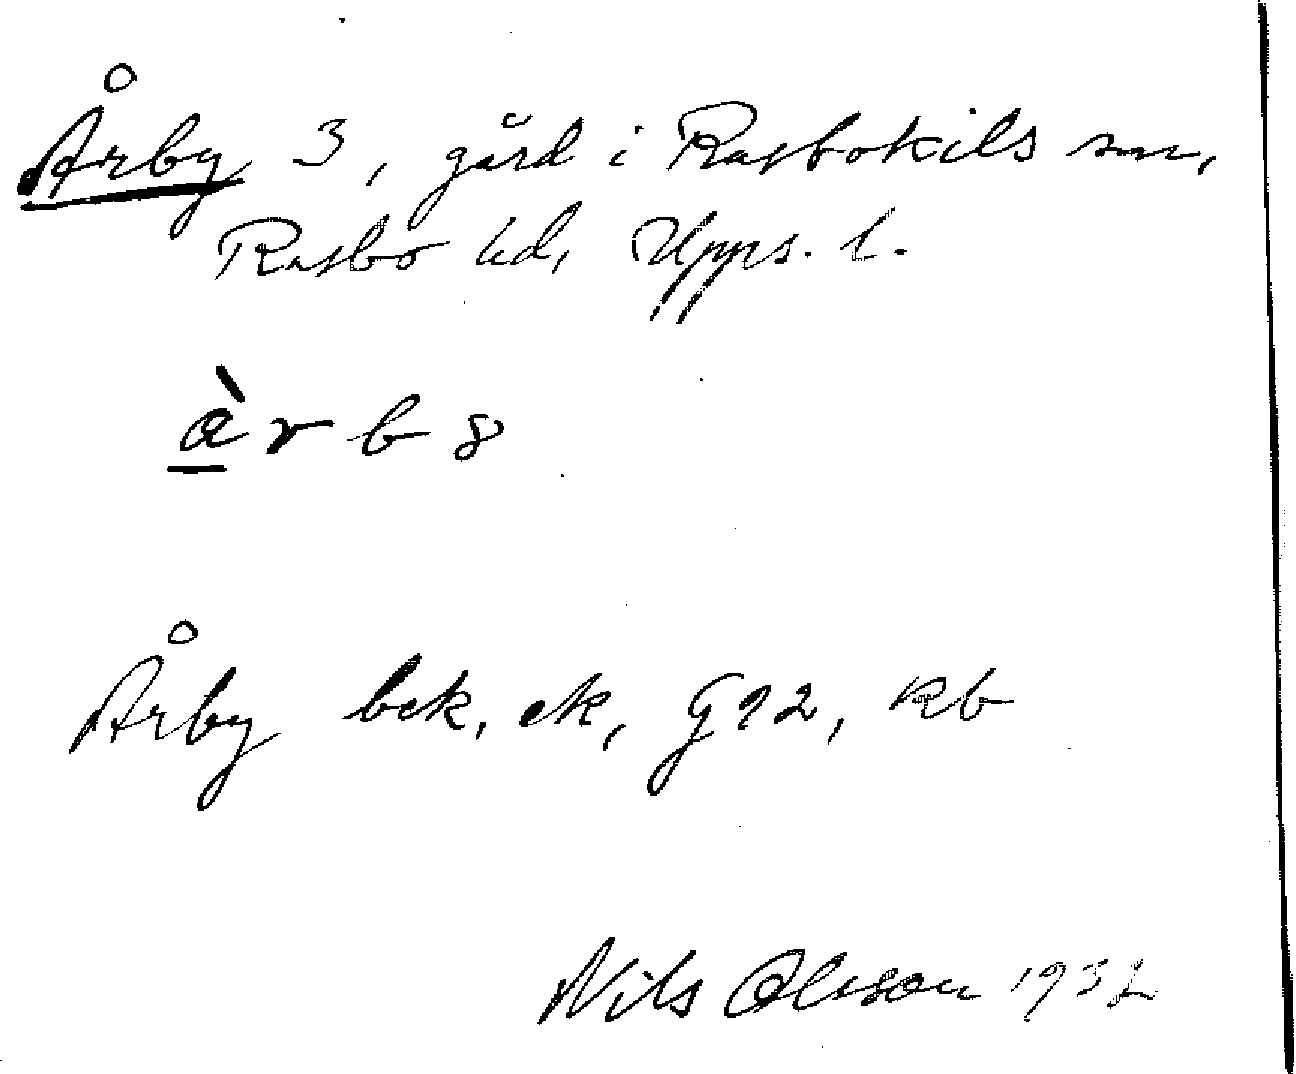 Årby 3, gård i Rasbokils sn,
Rasbo hd, Upps. l.
àrb8
Årby bek, ek, G92, kb
Nils Olsson 1932